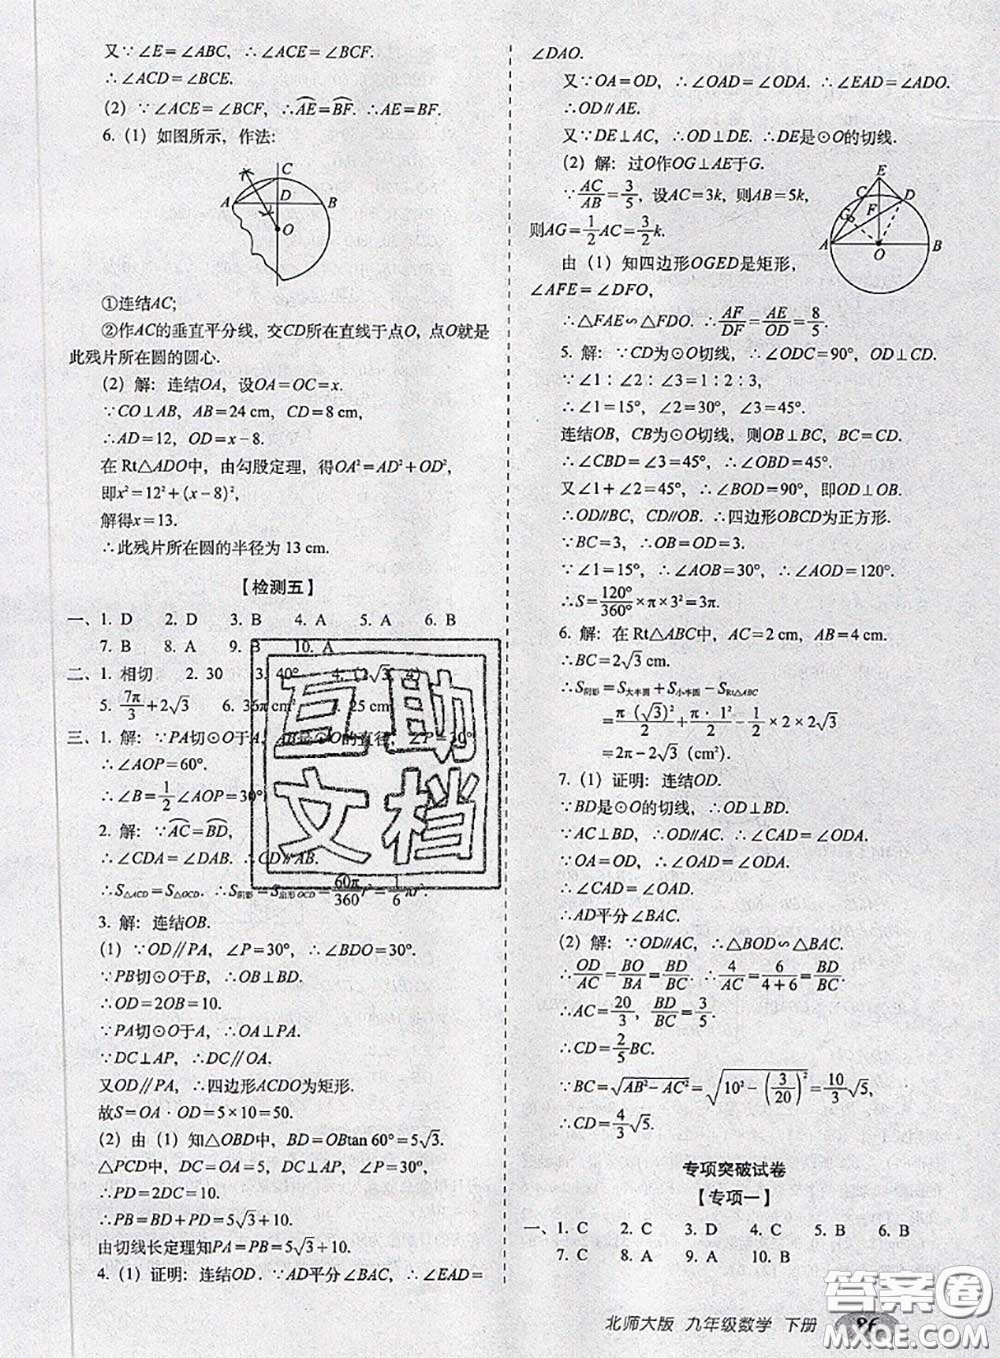 又∵∠E=∠ABC，∴∠ACE=∠BCF.
∴∠ACD=∠BCE.
(2) ∵∠ACE=∠BCF，∴AE=BF. ∴AE=BF.
6. (1) 如图所示，作法：
C
A D B
O
①连结AC;
②作AC的垂直平分线，交CD所在直线于点O，点O就是
此残片所在圆的圆心.
(2) 解：连结OA，设OA=OC=x.
∵CO⊥AB，AB=24 cm，CD=8 cm，
∴AD=12，OD=x-8.
在 Rt△ADO中，由勾股定理，得OA²=AD²+OD²,
即x²=12²+(x-8)²,
解得x=13.
∴此残片所在圆的半径为 13 cm.
【检测五】
一、1. D 2. D 3. B 4. A 5. A 6. B
7. B 8. A 9. B 10. A
二、1. 相切 2. 30 3. 40°
5. 7π/3+2√3 6. 36π cm² 7. 25 cm
三、1. 解：∵PA切⊙O于A，AB是⊙O的直径，∠P=30°
∴∠AOP=60°.
∴∠B=1/2∠AOP=30°
2. 解：∵AC=BD,
∴∠CDA=∠DAB. ∴CD∥AB.
∴S△ACD=S△OCD. ∴S阴影=S扇形OCD=60π/360 r²=1/6 πr².
3. 解：连结OB.
(1) ∵OD∥PA，∠P=30°，∴∠BDO=30°.
∵PB切⊙O于B，∴OB⊥BD.
∴OD=2OB=10.
∵PA切⊙O于A，∴OA⊥PA.
∵DC⊥AP，∴DC∥OA.
又OD∥PA，∴四边形ACDO为矩形.
故S=OA·OD=5×10=50.
(2) 由（1）知△OBD中，BD=OBtan 60°=5√3.
△PCD中，DC=OA=5，DC⊥AP，∠P=30°,
∴PD=2DC=10.
∴PB=BD+PD=5√3+10.
由切线长定理知PA=PB=5√3+10.
4. (1) 证明：连结OD. ∵AD平分∠BAC，∴∠EAD=
∠DAO.
又∵OA=OD，∴∠OAD=∠ODA. ∴∠EAD=∠ADO.
∴OD∥AE.
又∵DE⊥AC，∴OD⊥DE. ∴DE是⊙O的切线.
(2) 解：过O作OG⊥AE于G.
∵AC/AB=3/5，设AC=3k，则AB=5k，
则AG=1/2 AC=3/2 k.
由（1）知四边形OGED是矩形，
∠AFE=∠DFO,
E
C D
G F
A O B
∴△FAE∽△FDO. ∴AF/DF=AE/OD=8/5.
5. 解：∵CD为⊙O切线，∴∠ODC=90°，OD⊥CD.
∵∠1：∠2：∠3=1：2：3,
∴∠1=15°，∠2=30°，∠3=45°.
连结OB，CB为⊙O切线，则OB⊥BC，BC=CD.
∴∠CBD=∠3=45°，∴∠OBD=45°.
又∠1+∠2=45°，∴∠BOD=90°，即OD⊥OB.
∴OD∥BC，CD∥OB. ∴四边形OBCD为正方形.
∵BC=3，∴OB=OD=3.
∵∠1=15°，∴∠AOB=30°，∴∠AOD=120°.
∴S=120°/360°×π×3²=3π.
6. 解：在 Rt△ABC中，AC=2 cm，AB=4 cm.
∴BC=2√3 cm.
∴S阴影=S大半圆+S小半圆-SRt△ABC
=π（√3）²/2+π·1²/2-1/2×2×2√3
=2π-2√3（cm²）.
7. (1) 证明：连结OD.
∵BD是⊙O的切线，∴OD⊥BD.
∵AC⊥BD，∴OD∥AC. ∴∠CAD=∠ODA.
∵OA=OD，∴∠OAD=∠ODA.
∴∠CAD=∠OAD.
∴AD平分∠BAC.
(2) 解：∵OD∥AC，∴△BOD∽△BAC.
∴OD/AC=BO/BA=BD/BC. ∴4/AC=6/(4+6)=BD/BC.
∴AC=20/3，BD/BC=3/5.
∴CD=2/5 BC.
∵BC=√(AB²-AC²)=√(10²-(3/20)²)=10/3 √5.
∴CD=4/3 √5.
专项突破试卷
【专项一】
一、1. C 2. C 3. D 4. C 5. B 6. B
7. C 8. A 9. A 10. B
北师大版 九年级数学 下册
互助
文档
答案圈
MXQE.COM